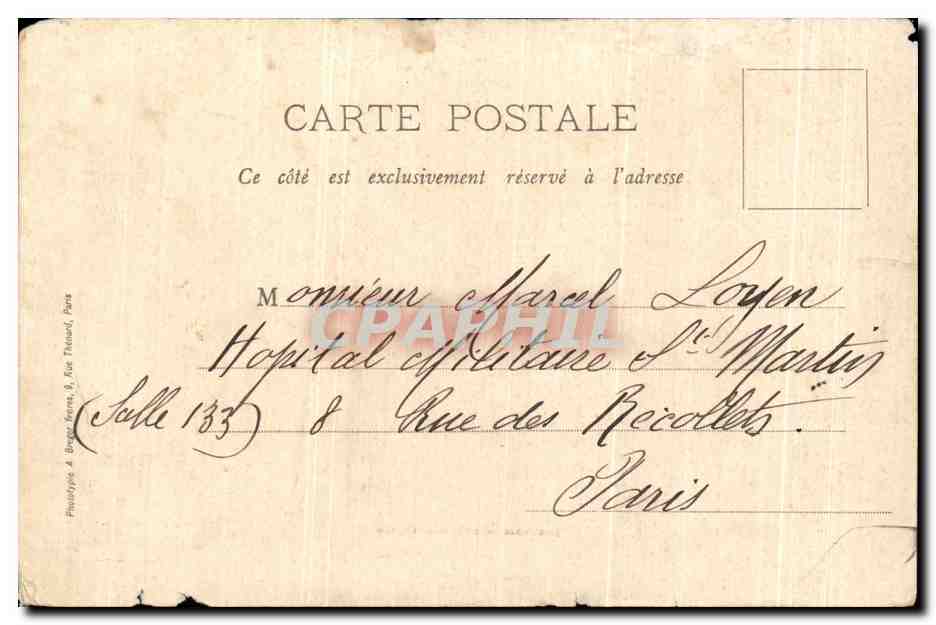 CARTE POSTALE
Ce côté est exclusivement réservé à l'adresse
Monsieur Marcel Loyen
CPAPHIL
Hopital Militaire St Martin
(Salle 133) 8 Rue des Récollets.
Paris
Phototypie A Breger frères, 9, Rue Thénard, Paris